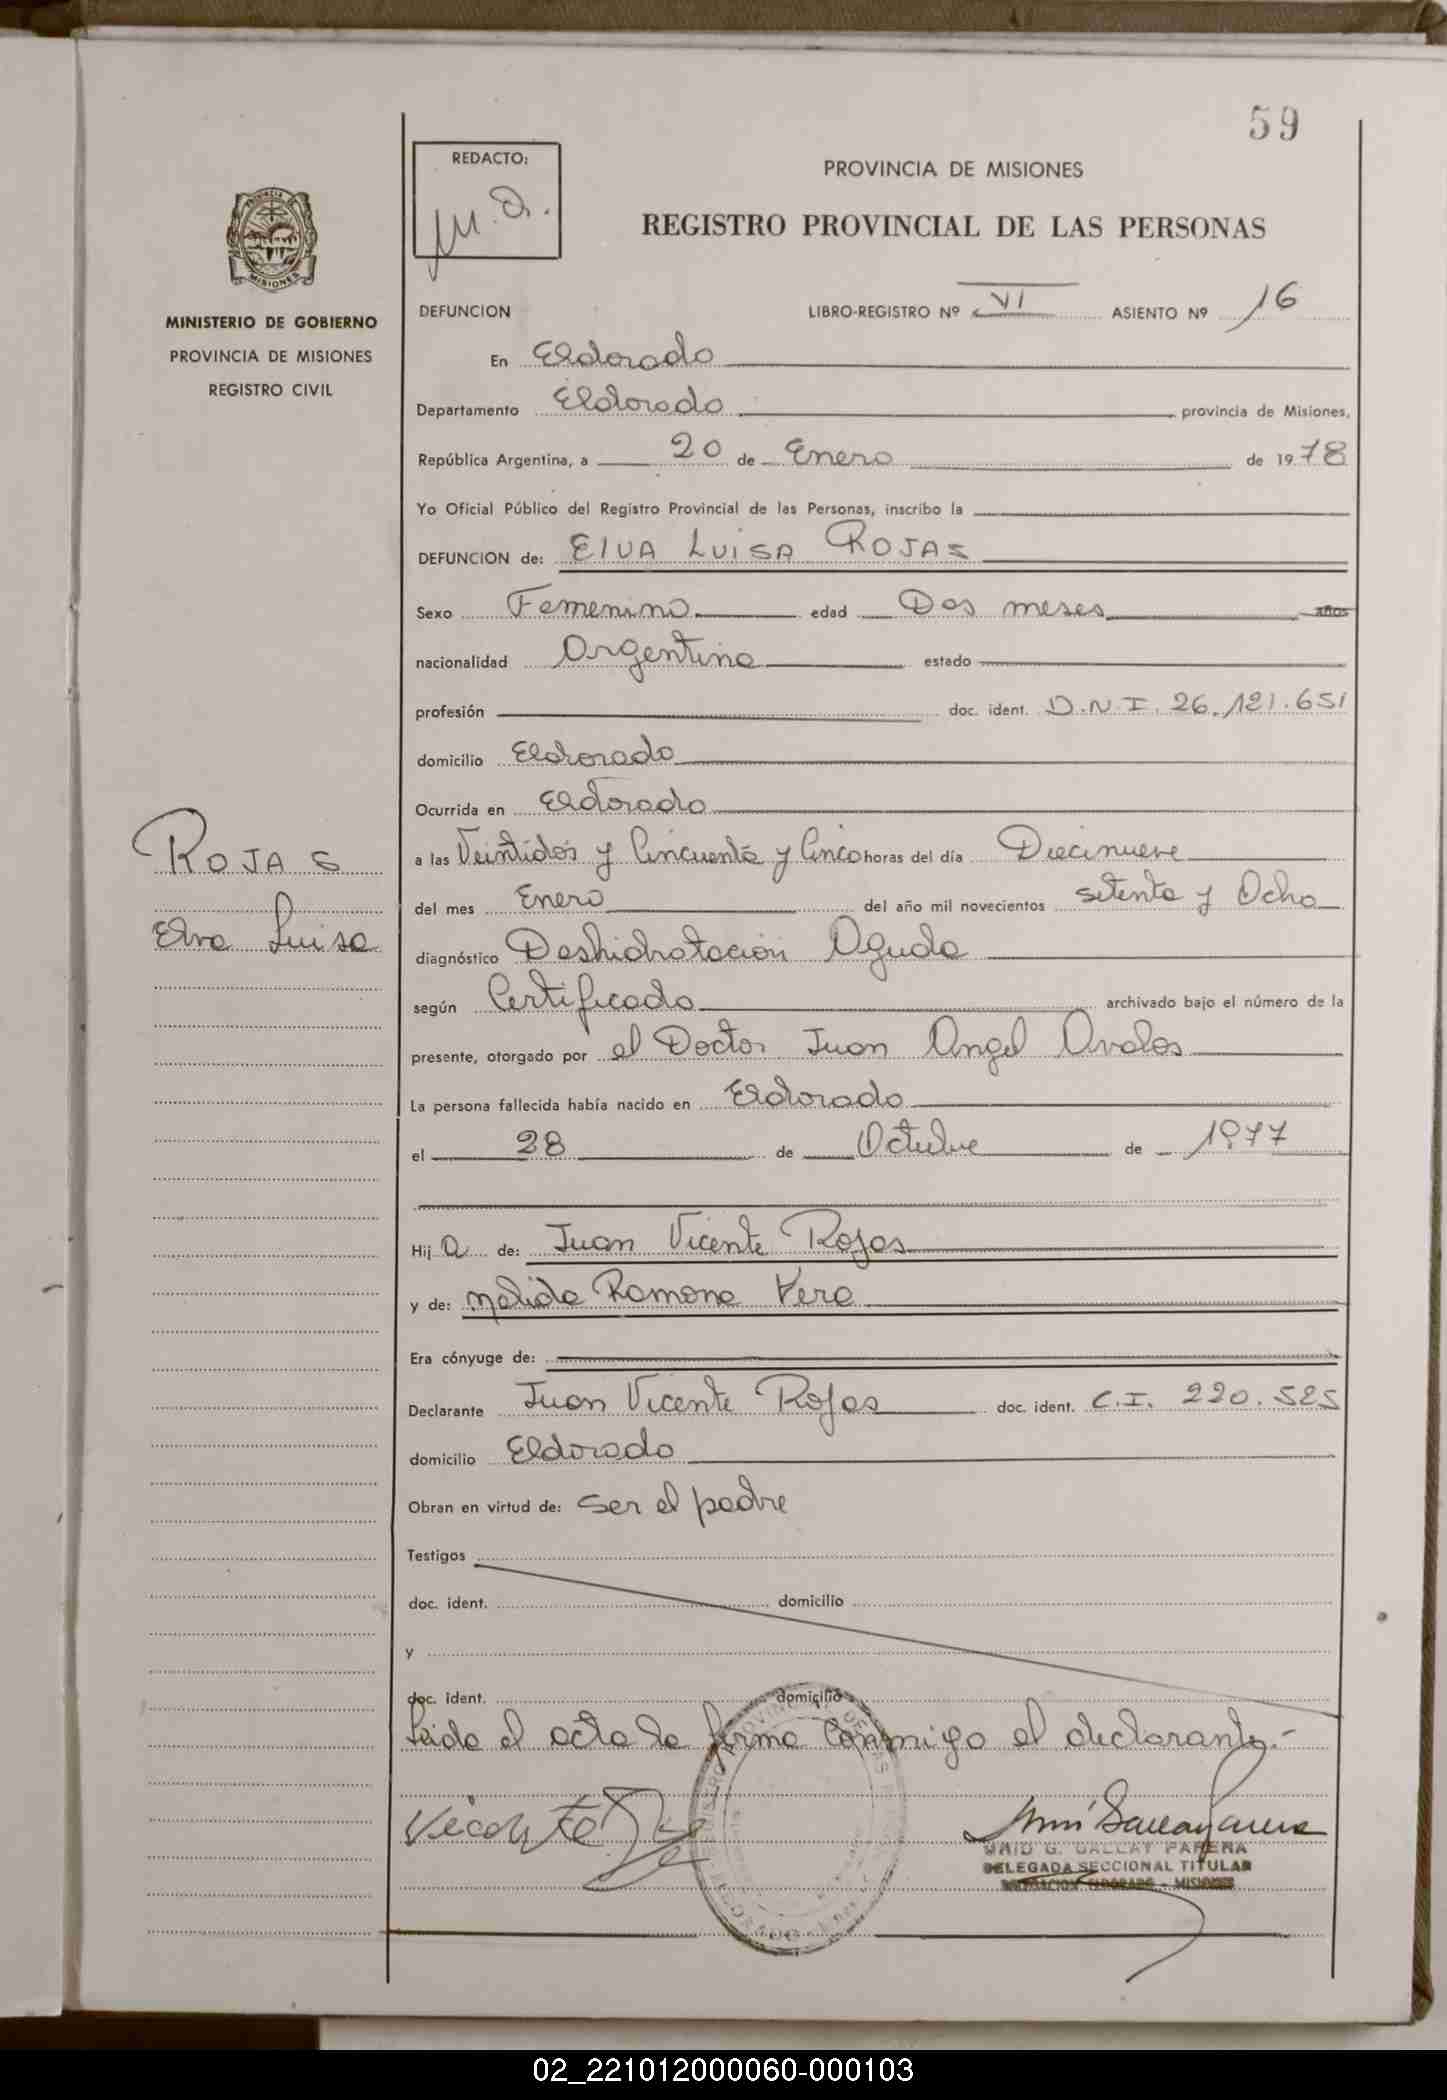 59
REDACTO:
PROVINCIA DE MISIONES
REGISTRO PROVINCIAL DE LAS PERSONAS
PROVINCIA DE
MISIONES
MINISTERIO DE GOBIERNO
PROVINCIA DE MISIONES
REGISTRO CIVIL
DEFUNCION LIBRO-REGISTRO Nº VI ASIENTO Nº 16
En Eldorado
Departamento Eldorado provincia de Misiones,
República Argentina, a 20 de Enero de 1978
Yo Oficial Público del Registro Provincial de las Personas, inscribo la
DEFUNCION de: Elva Luisa Rojas
Sexo Femenino edad Dos meses años
nacionalidad Argentina estado
profesión doc. ident. D.N.I. 26.121.651
domicilio Eldorado
Ocurrida en Eldorado
a las Veintidós y Cincuenta y Cinco horas del día Diecinueve
del mes Enero del año mil novecientos setenta y Ocho
diagnóstico Deshidratación Aguda
según Certificado archivado bajo el número de la
presente, otorgado por el Doctor Juan Angel Avalos
La persona fallecida había nacido en Eldorado
el 28 de Octubre de 1977
Hij a de: Juan Vicente Rojas
y de: Ramona Vera
Era cónyuge de:
Declarante Juan Vicente Rojas doc. ident. C.I. 220.525
domicilio Eldorado
Obran en virtud de: ser el padre
Testigos
doc. ident. domicilio
y
doc. ident. domicilio
Leida el acta la firma conmigo el declarante.-
ROJAS
Elva Luisa
DELEGADA SECCIONAL TITULAR
DELEGACION ELDORADO - MISIONES
02_221012000060-000103